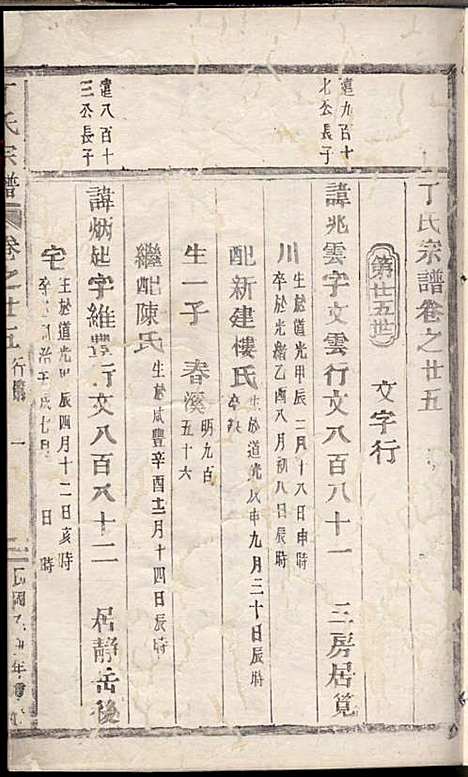 丁氏宗譜卷之廿五
第廿五世
文字行
達九百十
七公長子
諱兆雲字文雲行文八百八十一 三房居筧
川 生於道光甲辰二月十八日申時
卒於光緒乙酉八月初八日辰時
配新建樓氏 生於道光戊申九月三十日辰時
卒
生一子 春溪 明九百
五十六
繼配陳氏 生於咸豐辛酉十二月十四日辰時
達八百十
三公長子
諱炳 字維豐行文八百八十二 居靜岳後
宅 生於道光甲辰四月十二日亥時
卒 同治 戌七月 日 時
丁氏宗譜 卷之廿五 行傳 一
民國 年